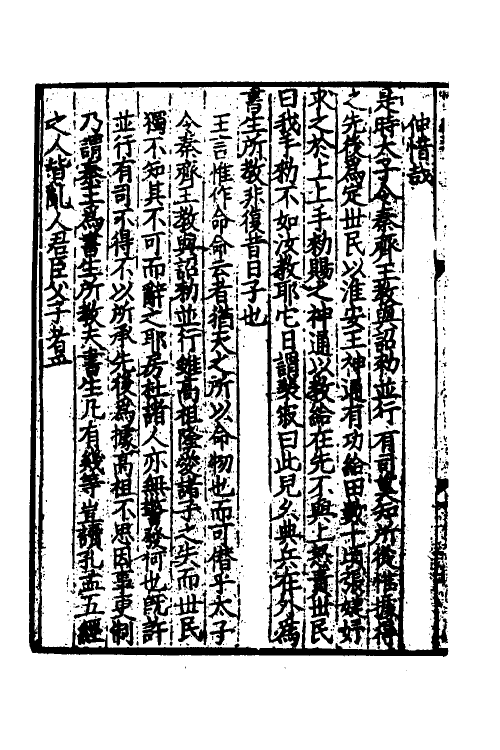 仲惜哉
是時太子令秦齊王教與詔勑並行有司莫知所從惟據得
之先後爲定世民以淮安王神通有功給田數十頃張婕妤
求之於上上手勑賜之神通以教給在先不與上怒責世民
曰我手勑不如汝教耶它日謂裴寂曰此兒久典兵在外爲
書生所教非復昔日子也
王言惟作命命云者猶天之所以命物也而可僭乎太子
令秦齊王教與詔勑並行雖高祖隆愛諸子之失而世民
獨不知其不可而辭之耶房杜諸人亦無警發何也既許
並行有司不得不以所承先後爲據高祖不思因事更制
乃謂秦王爲書生所教夫書生凡有幾等豈讀孔孟五經
之人皆亂人君臣父子者豆